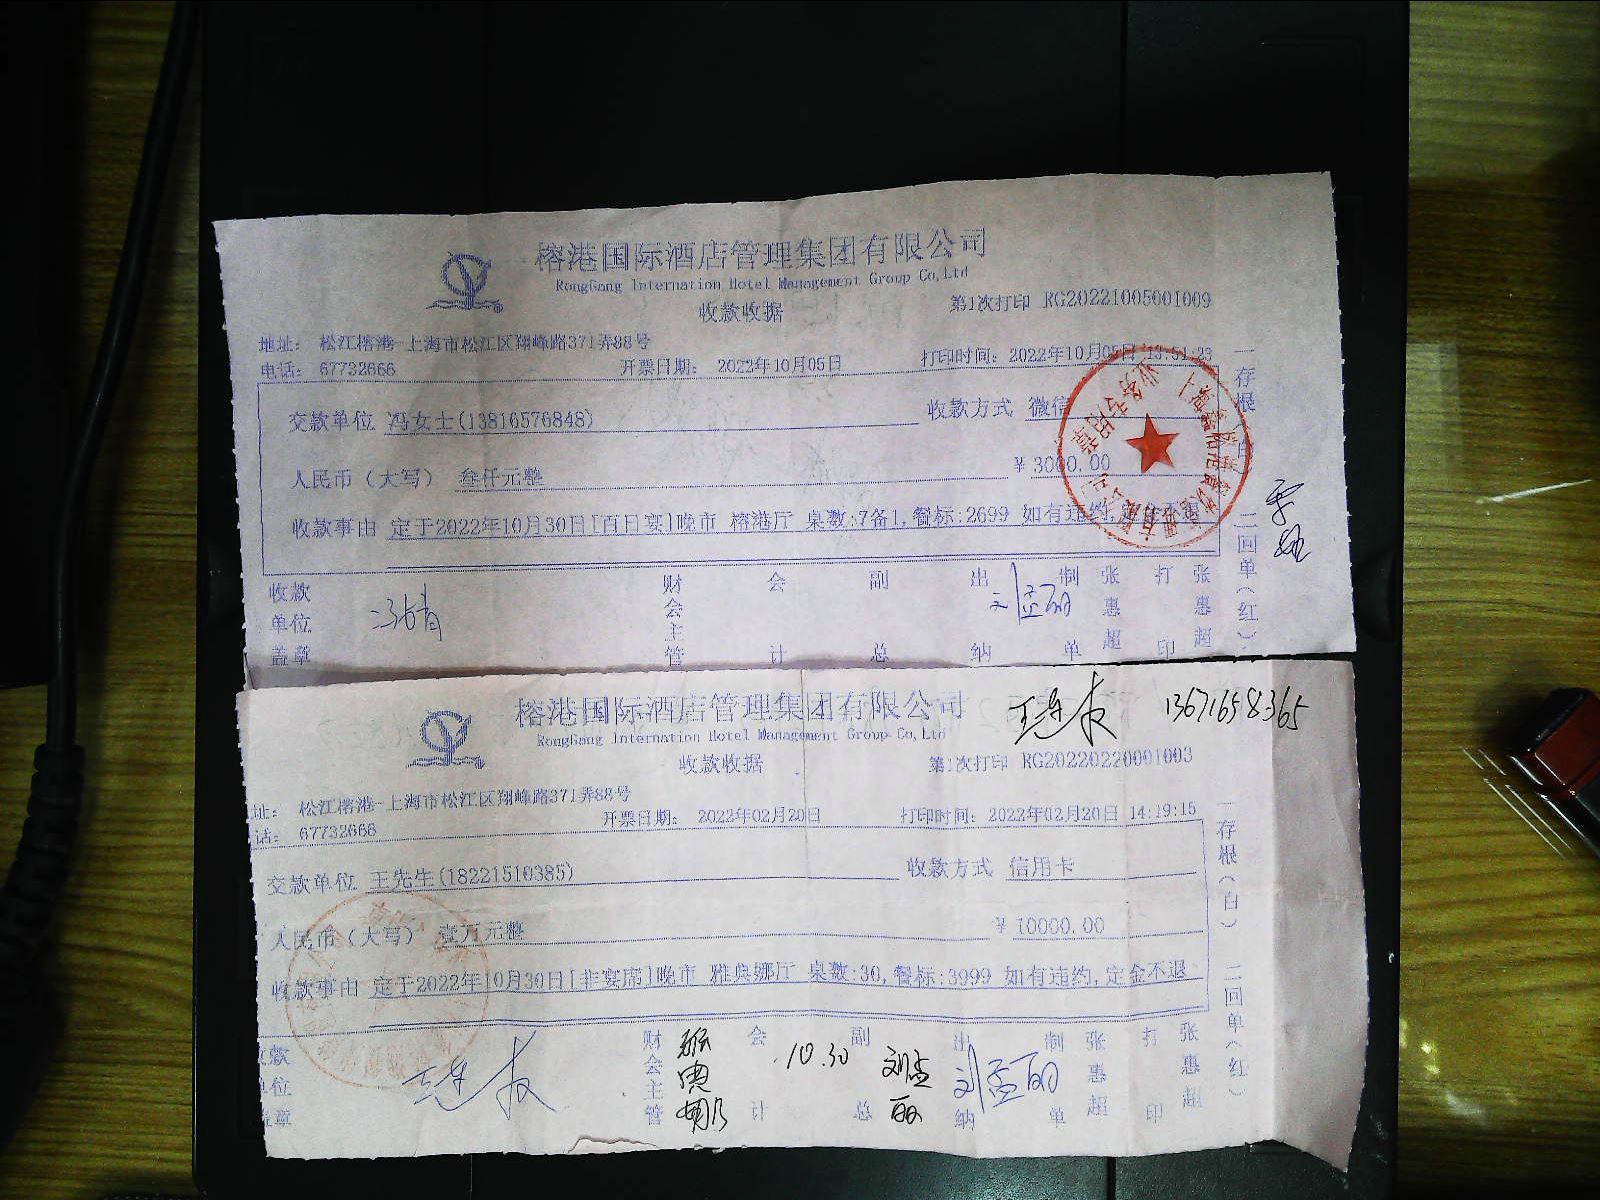 榕港国际酒店管理集团有限公司
RongGang Internation Hotel Management Group Co,Ltd
收款收据
第1次打印 RG20221005001009
地址： 松江榕港-上海市松江区翔峰路371弄88号
电话： 67732666 开票日期： 2022年10月05日 打印时间：2022年10月05日 13:51:23
交款单位 冯女士(13816576848) 收款方式 微信
人民币（大写） 叁仟元整 ￥3000.00
收款事由 定于2022年10月30日[百日宴]晚市 榕港厅 桌数:7备1,餐标:2699 如有违约,定金不退
收款单位盖章 财会主管 会计 副总 出纳 刘孟丽 制单 张惠超 打印 张惠超
一存根（白） 二回单（红）
业务专用章
榕港国际酒店管理集团有限公司
王连友 13671658365
RongGang Internation Hotel Management Group Co,Ltd
收款收据
第1次打印 RG20220220001003
址： 松江榕港-上海市松江区翔峰路371弄88号
话： 67732666 开票日期： 2022年02月20日 打印时间：2022年02月20日 14:19:15
交款单位 王先生(18221510385) 收款方式 信用卡
人民币（大写） 壹万元整 ￥10000.00
收款事由 定于2022年10月30日[非宴席]晚市 雅典娜厅 桌数:30,餐标:3999 如有违约,定金不退
收款单位盖章 王连友 财会主管 雅典娜 会计 10.30 副总 刘孟丽 出纳 刘孟丽 制单 张惠超 打印 张惠超
一存根（白） 二回单（红）